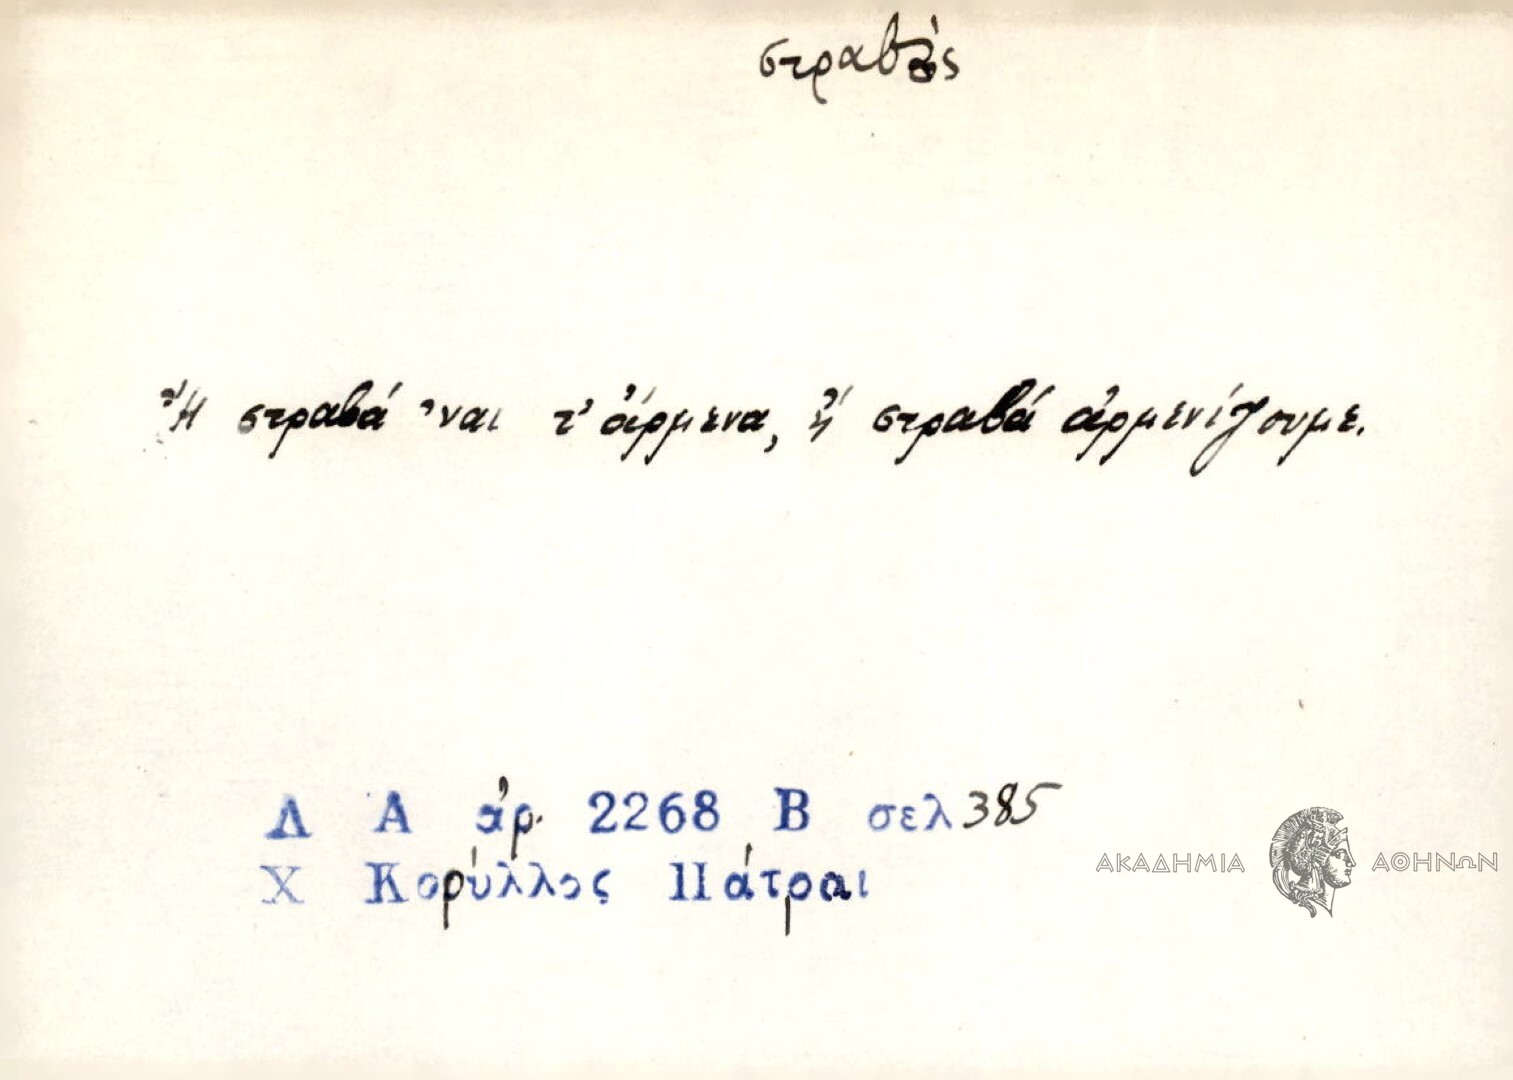 στραβός
Ἤ στραβά 'ναι τ' ἄρμενα, ἤ στραβά ἀρμενίζουμε.
Λ Α ἀρ. 2268 Β σελ 385
Χ Κορύλλος Πάτραι
ΑΚΑΔΗΜΙΑ ΑΘΗΝΩΝ